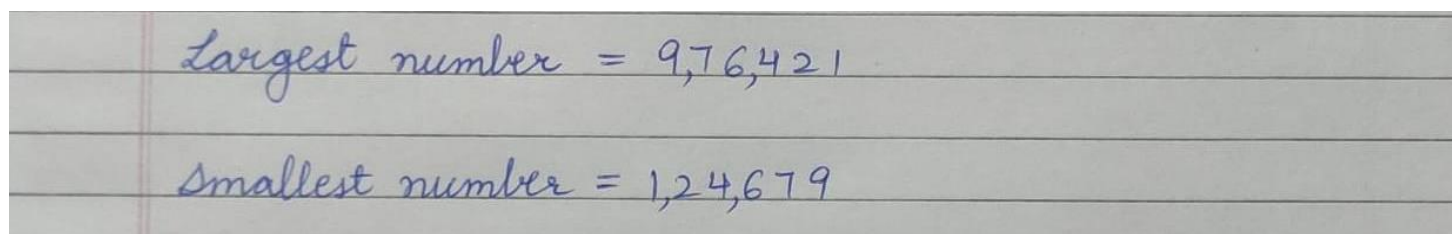 Largest number = 9,76,421
Smallest number = 1,24,679